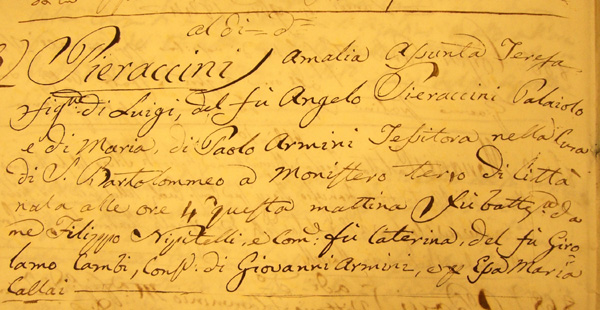 al di d.o
Pieraccini Amalia Assunta Teresa
fig.la di Luigi, del fù Angelo Pieraccini Palaiolo
e di Maria, di Paolo Armini Tessitora nella Cura
di S. Bartolommeo a Monistero terio di Città
nata alle ore 4 questa mattina fù batt.a da
me Filippo Nisitelli, e Com.e fù Caterina, del fù Giro
lamo Cambi, Conf. di Giovanni Armini, e Ep.a Maria
Callai